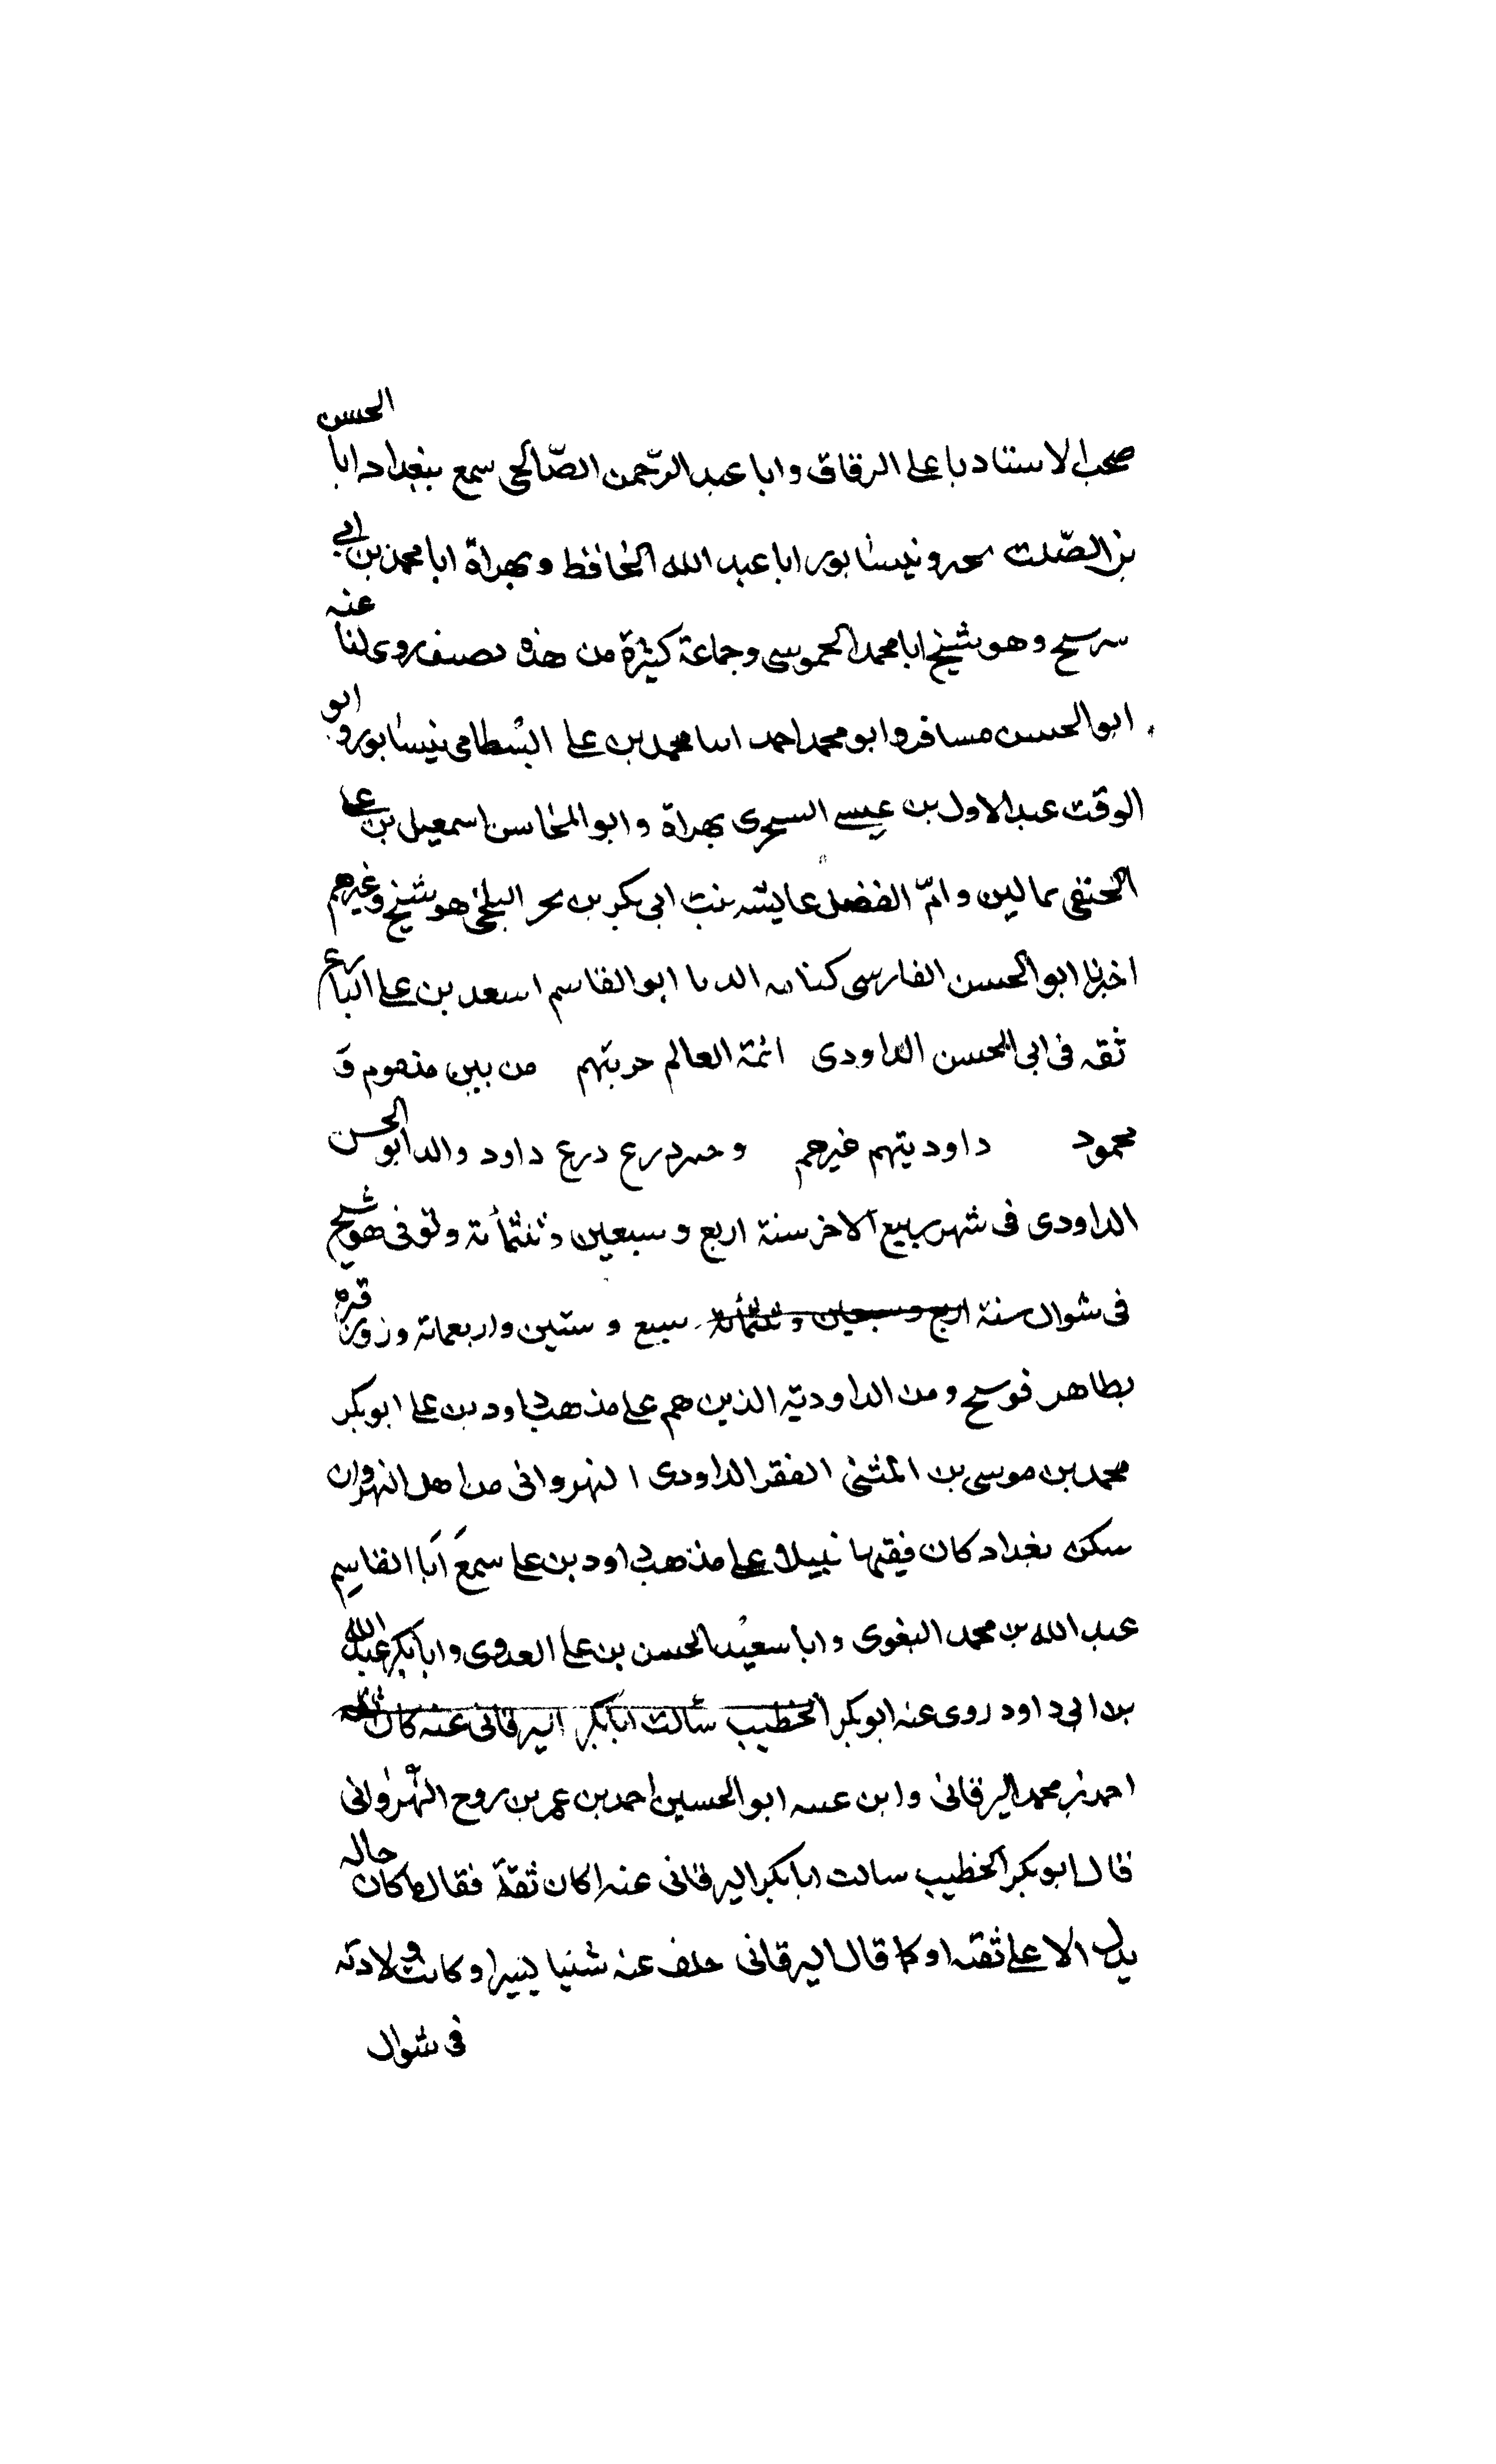 صحب الاستاد با على الرقاق وابا عبد الرّحمن الصّالحى سمع ببغداد ابا الحسن
بن الصّلت ونيسابور ابا عبد الله الحافظ وبهراة ابا محمد بن ابى
سريح وهوشيخ ابا محمد الحموسى وجماعة كثيرة من هذه روى لنا عنه
ابو الحسن مسافر وابو محمد احمد محمد بن على البسطامى نيسابور وابو
الوقت عبد الاول بن عيسى السجزى بهراة وابو المحاسن اسمعيل بن على
الحنفى بمالين وامّ الفضل عايشه بنت ابى بكر بن بحر البلخى هوشيخ وغيرهم
اخبرنا ابو الحسن الفارسى ابو القاسم اسعد بن على البارع
ثقه فى ابى الحسن الداودى ائمة العالم جربتهم من بين مذموم و
محمود داوديتهم غيرهم درع داود والد ابو الحسن
الداودى فى شهر ربيع الاخر سنة اربع وسبعين وثلثمائة وتوفى هوشيح
فى شوال سنة اربع وسبعين وثلثمائة سبع وستين واربعمائة وزورت قبره
بظاهر فوسح ومن الداودية الذين هم على مذهب داود بن على ابو بكر
محمد بن موسى بن المثنى الفقر الداودى النهروانى من اهل النهروان
سكن بغداد كان فقيها نبيلا على مذهب داود بن على سمع ابا القاسم
عبد الله بن محمد البغوى وابا سعيد الحسن بن على العدوى وابا بكر عبد الله
بن ابى داود روى عنه ابو بكر الخطيب سالت ابا بكر البرقانى عنه كان ثقه
احمد بن محمد البرقانى وابن عمه ابو الحسين احمد بن عمر بن روح النهروانى
قال ابو بكر الخطيب سالت ابا بكر البرقانى عنه اكان ثقة فقال ما كان حاله
يدل الا على ثقته او كما قال البرقانى عنه شئيا يسيرا وكانت ولادته
فى شوال